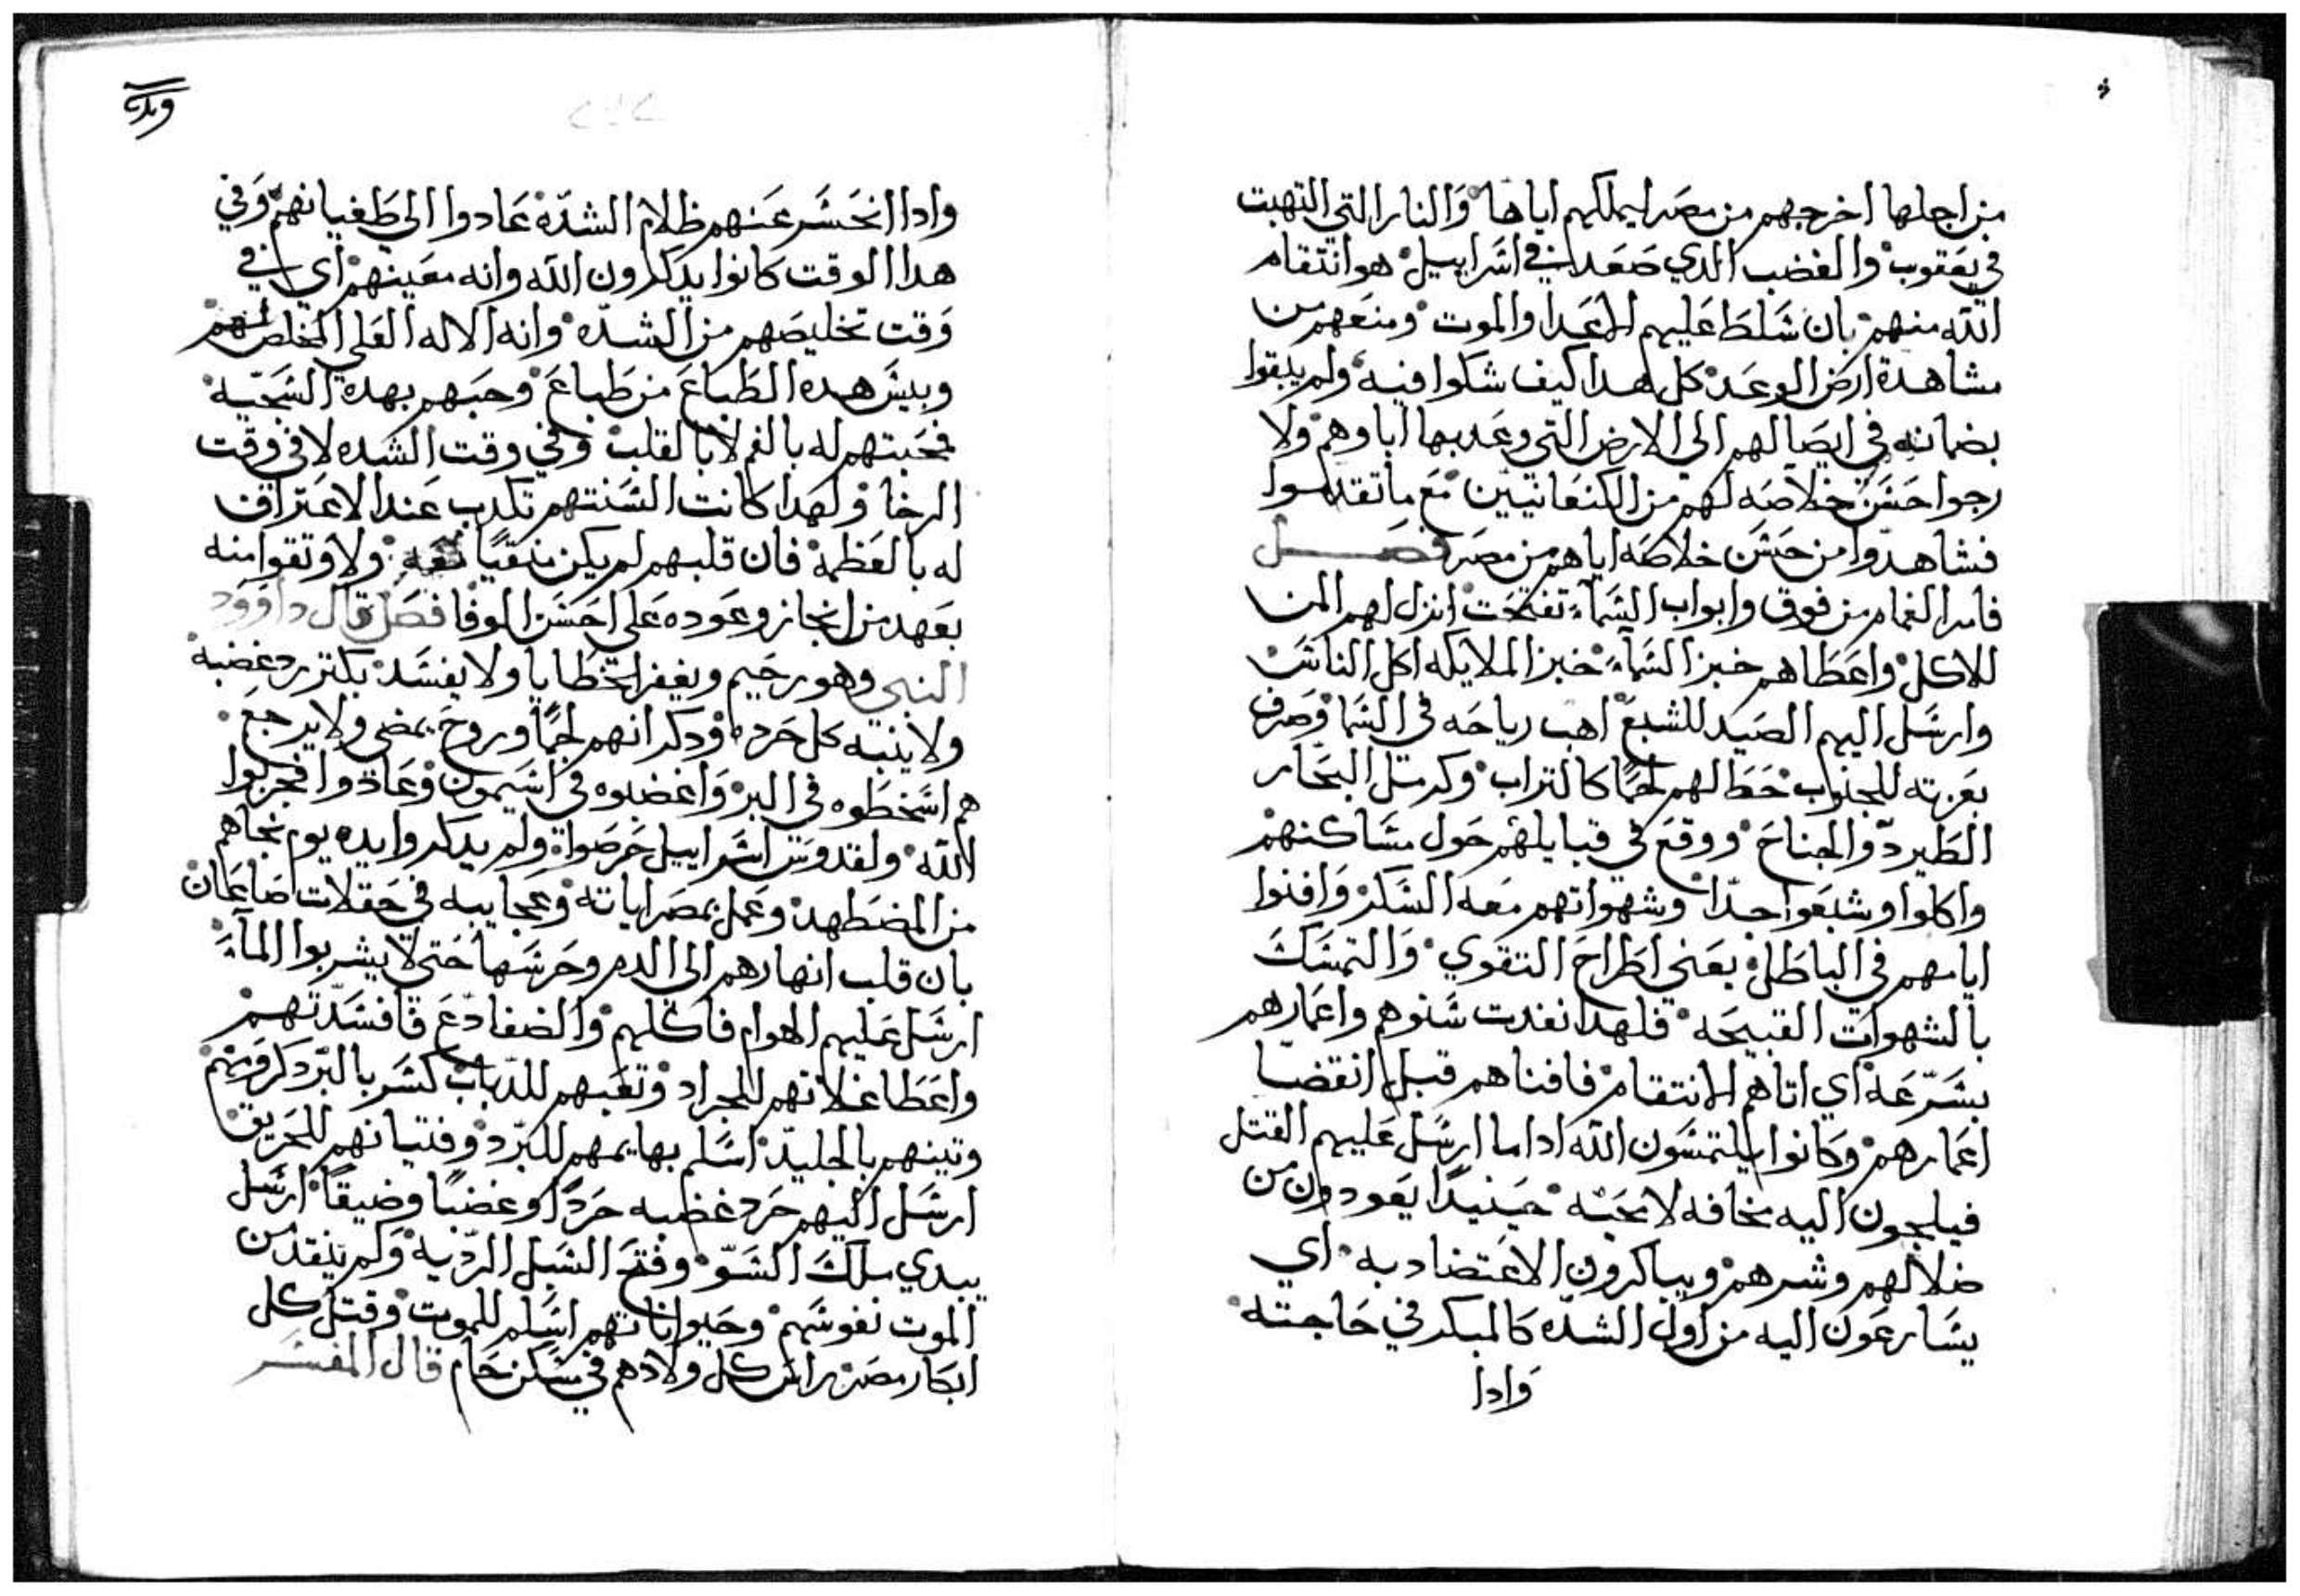 من اجلها اخرجهم من مصر ليملكهم اياها والنار التي التهبت
في يعقوب والغضب الدي صعد في اسراييل هو انتقام
الله منهم بان سلط عليهم الاعدا والموت ومنعهم من
مشاهدة ارض الوعد كل هدا كيف شكوا فيه ولم يبقوا
بضمانه في ايصالهم الى الارض التي وعد بها اباوهم ولا
رجوا حسن خلاصه لهم من الكنعانيين مع ما تقدموا
فشاهدوا من حسن خلاصه اياهم من مصر فصل
فامر الغمام من فوق وابواب السماء تفتحت انزل لهم المن
للاكل واعطاهم خبز السماء خبز الملايكه اكل الناس
وارسل اليهم الصيد للشبع اهب رياحه في السما وصرف
بعزته للجنوب حط لهم لحمًا كالتراب وكرمل البحار
الطير دو الجناح ووقع في قبايلهم حول مساكنهم
واكلوا وشبعوا جدا وشهواتهم معه السكر وافنوا
ايامهم في الباطل يعني اطراح التقوي والتمسك
بالشهوات القبيحه فلهدا نفدت سنوهم واعمارهم
بسرعه اي اتاهم الانتقام فافناهم قبل انقضا
اعمارهم وكانوا يلتمسون الله ادا ما ارسل عليهم القتل
فيلجون اليه مخافه لا محبه حينيدا يعودون من
ضلالهم وشرهم ويباكرون الاعتضاد به اي
يسارعون اليه من اول الشده كالمبكر في حاجته
وادا
وادا انحسر عنهم ظلام الشدة عادوا الى طغيانهم وفي
هدا الوقت كانوا يدكرون الله وانه معينهم اي في
وقت تخليصهم من الشده وانه الاله العلي المخلص لهم
وبيس هده الطباع من طباع وحبهم بهدة السجيه
فمحبتهم له بالفم لا بالقلب وفي وقت الشده لا في وقت
الرخا ولهدا كانت السنتهم تكدب عند الاعتراف
له بالعظمة فان قلبهم لم يكن نقيًا معه ولا وثقوا منه
بعهد من انجاز وعوده على احسن الوفا فصل قال داوود
النبي وهو رحيم ويغفر الخطايا ولا يفسد يكتر رد غضبه
ولا ينبه كل حرده ودكر انهم لحمًا وروح يمضي ولا يرجع
هم اسخطوه في البر واغضبوه في اسيمون وعادوا فجربوا
الله ولقدوس اسراييل حرصوا ولم يدكروا يده يوم نجاهم
من المضطهد وعمل بمصر اياته وعجايبه في حقلات صاعان
بان قلب انهارهم الى الدم وحرسها حتى لا يشربوا الماء
ارسل عليهم الهوام فاكلهم والضفادع فافسدتهم
واعطا غلاتهم للجراد وتعبهم للدباب كسر بالبرد كرومهم
وتينهم بالجليد اسلم بهايمهم للبرد وفتيانهم للحريق
ارسل اليهم حرد غضبه حردًا وغضبًا وضيقًا ارسل
بيدي ملاك السو وفتح السبل الرديه ولم ينقد من
الموت نفوسهم وحيواناتهم اسلم للموت وقتل كل
ابكار مصر راس كل ولادهم في مسكن حام قال المفسر